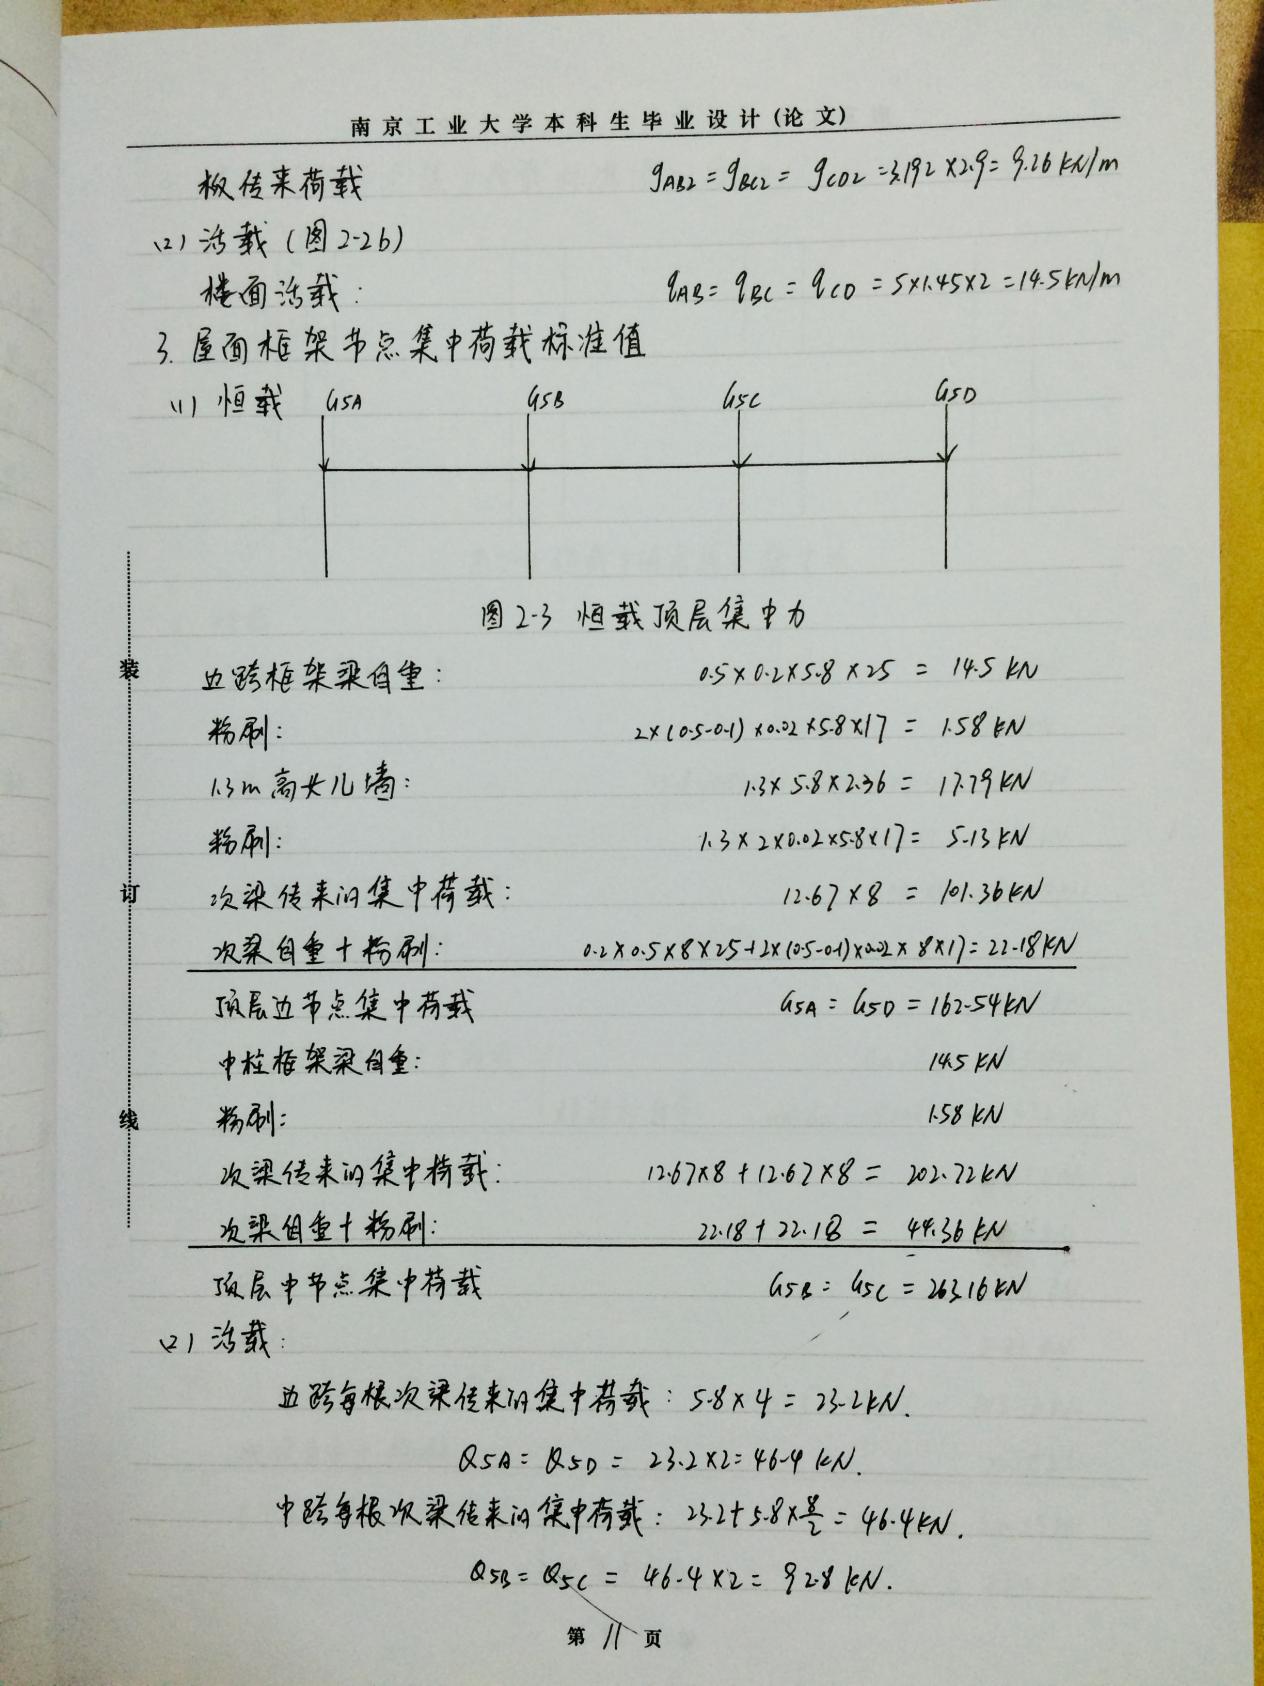 南京工业大学本科生毕业设计(论文)
板传来荷载 gAB2=gBC2=gCD2=3.192×2.9=9.26kN/m
(2) 活载(图2-2b)
楼面活载: qAB=qBC=qCD=5×1.45×2=14.5kN/m
3. 屋面框架节点集中荷载标准值
(1) 恒载 G5A G5B G5C G5D
图2-3 恒载顶层集中力
边跨框架梁自重: 0.5×0.2×5.8×25=14.5kN
粉刷: 2×(0.5-0.1)×0.02×5.8×17=1.58kN
1.3m高女儿墙: 1.3×5.8×2.36=17.79kN
粉刷: 1.3×2×0.02×5.8×17=5.13kN
次梁传来的集中荷载: 12.67×8=101.36kN
次梁自重+粉刷: 0.2×0.5×8×25+2×(0.5-0.1)×0.02×8×17=22.18kN
顶层边节点集中荷载 G5A=G5D=162.54kN
中柱框架梁自重: 14.5kN
粉刷: 1.58kN
次梁传来的集中荷载: 12.67×8+12.67×8=202.72kN
次梁自重+粉刷: 22.18+22.18=44.36kN
顶层中节点集中荷载 G5B=G5C=263.16kN
(2) 活载:
边跨每根次梁传来的集中荷载: 5.8×4=23.2kN.
Q5A=Q5D=23.2×2=46.4kN.
中跨每根次梁传来的集中荷载: 23.2+5.8×8/2=46.4kN.
Q5B=Q5C=46.4×2=92.8kN.
第 11 页
装
订
线